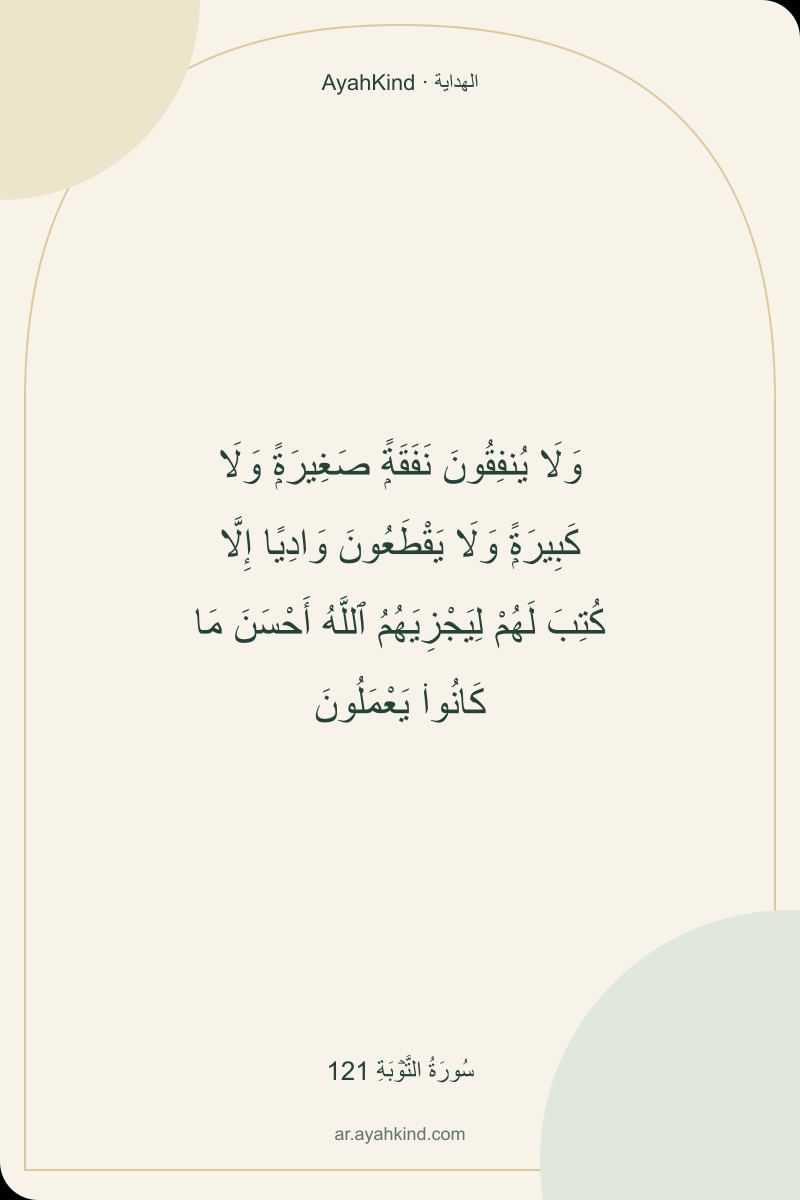 AyahKind · الهداية
وَلَا يُنفِقُونَ نَفَقَةًۭ صَغِيرَةًۭ وَلَا
كَبِيرَةًۭ وَلَا يَقْطَعُونَ وَادِيًا إِلَّا
كُتِبَ لَهُمْ لِيَجْزِيَهُمُ ٱللَّهُ أَحْسَنَ مَا
كَانُوا۟ يَعْمَلُونَ
سُورَةُ التَّوۡبَةِ 121
ar.ayahkind.com